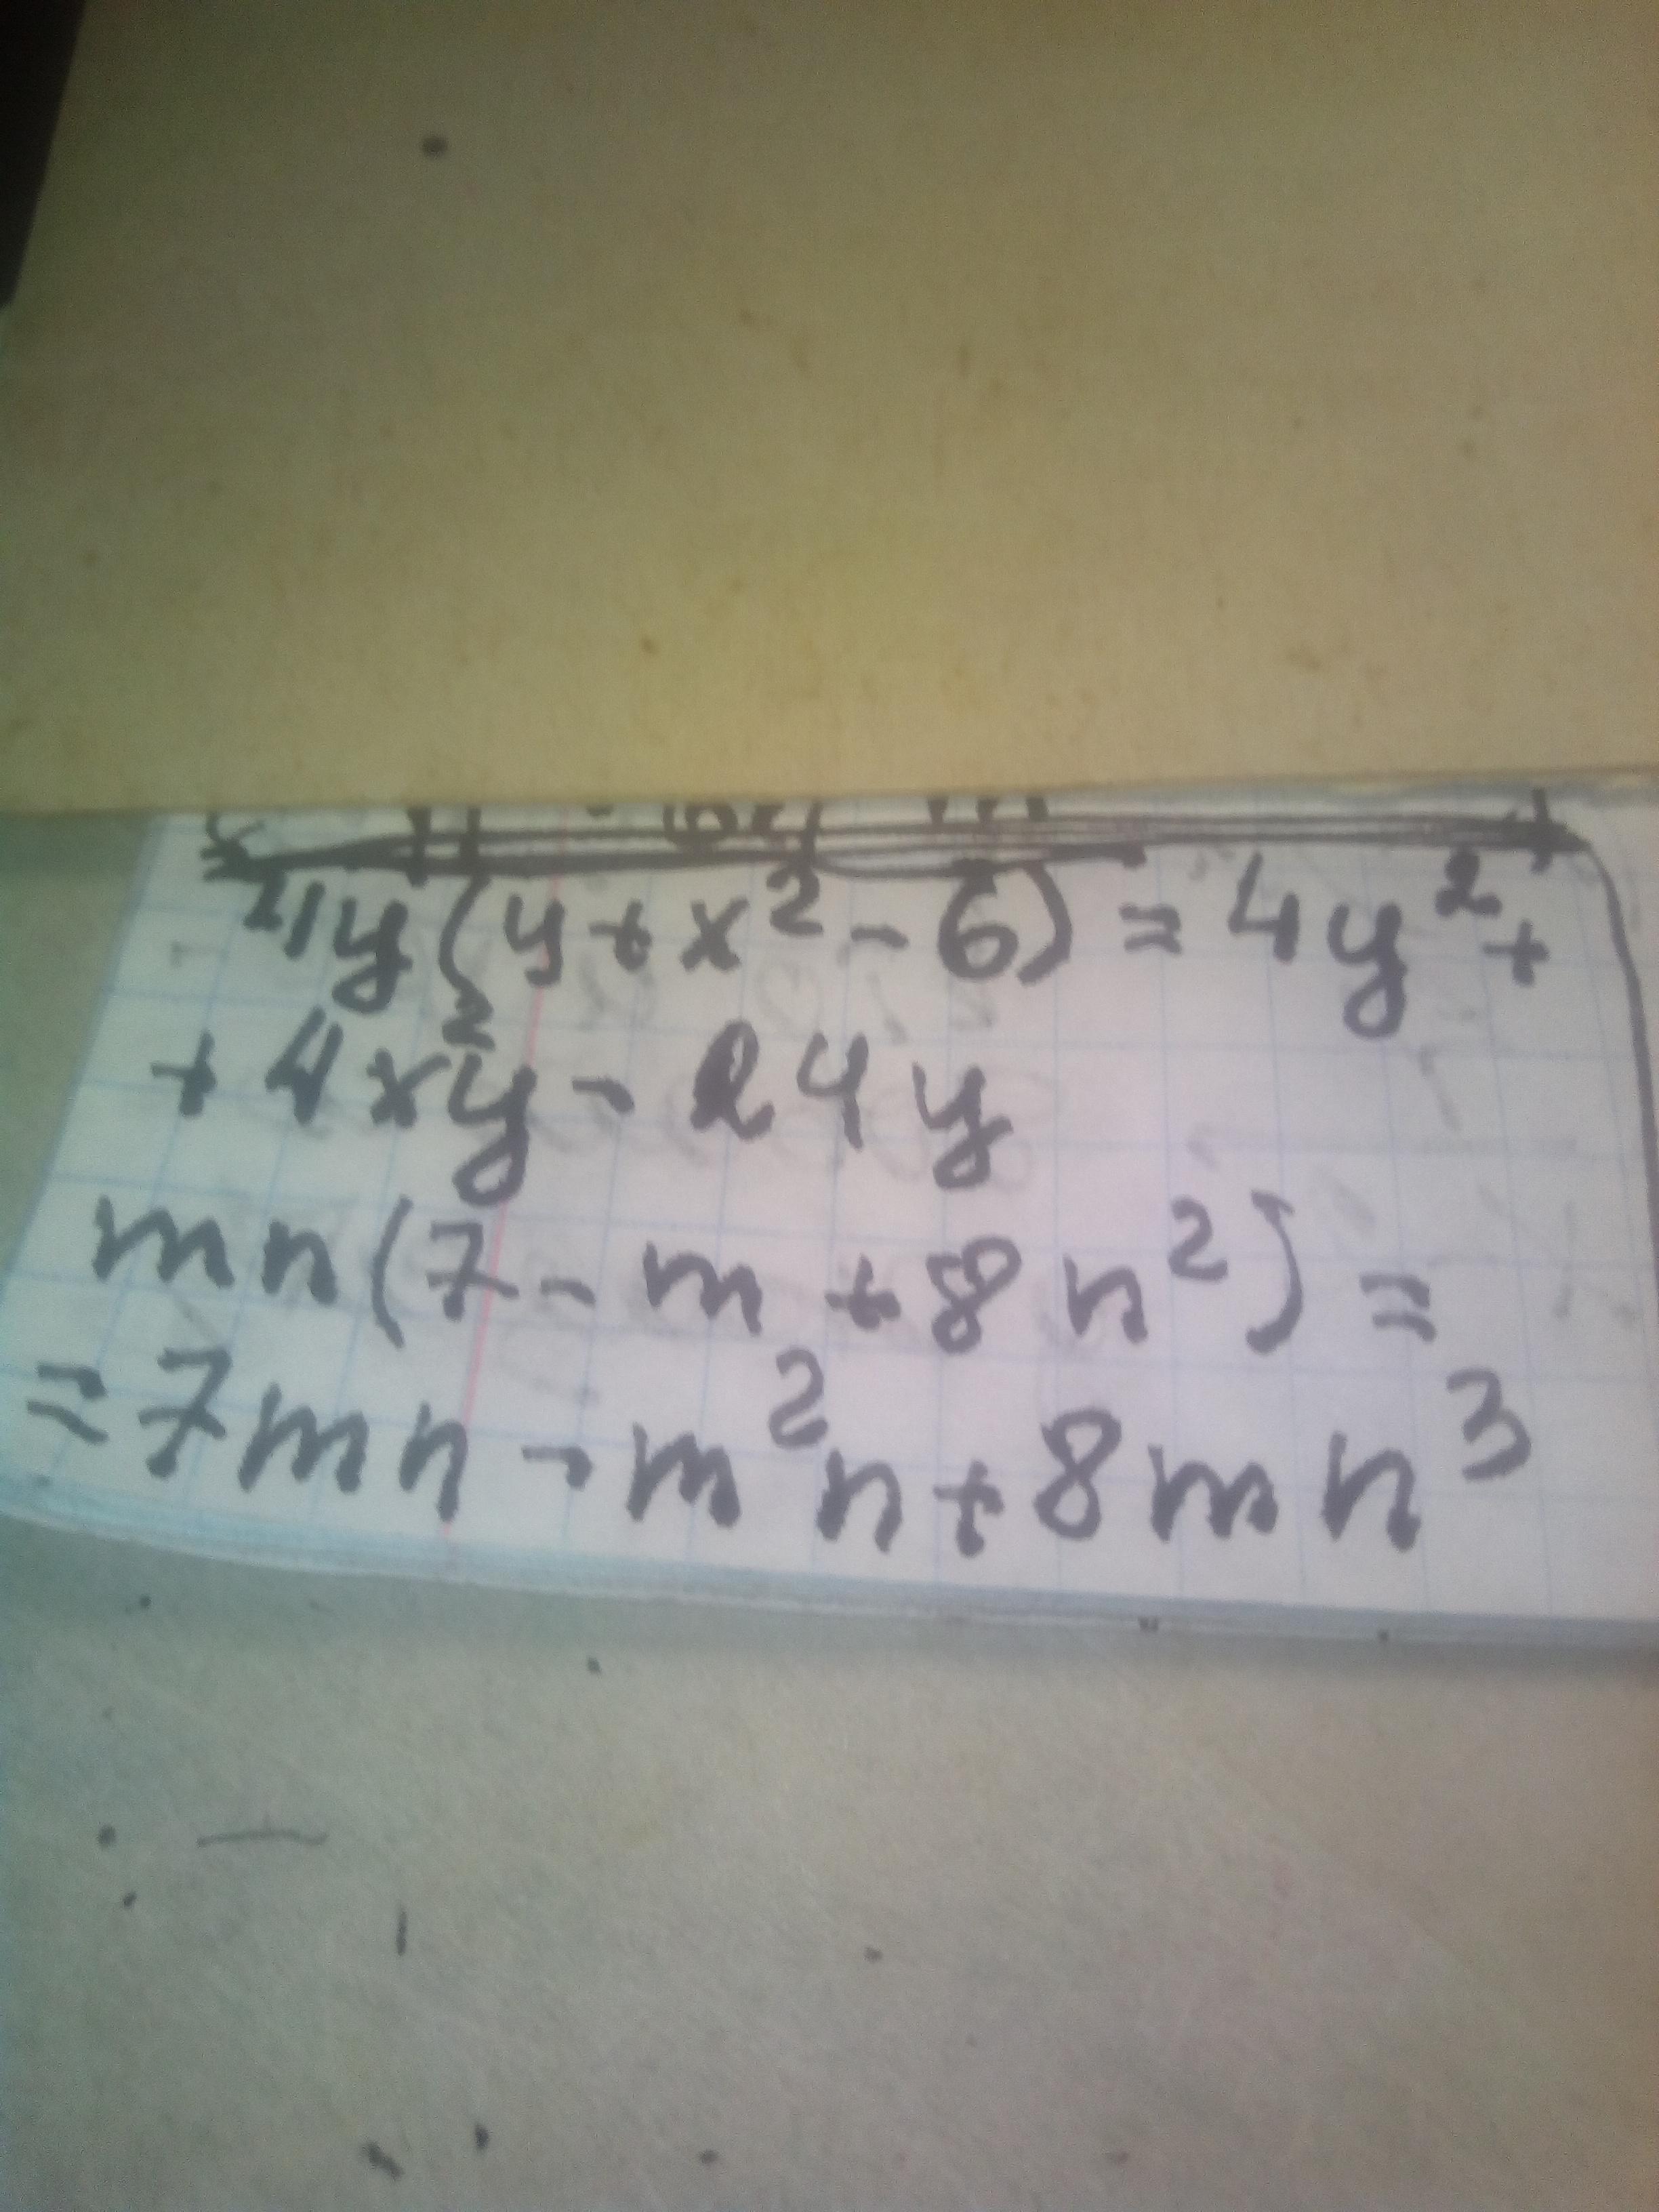 4y(y+x²-6)=4y²+
+4x²y-24y
mn(7-m+8n²)=
=7mn-m²n+8mn³